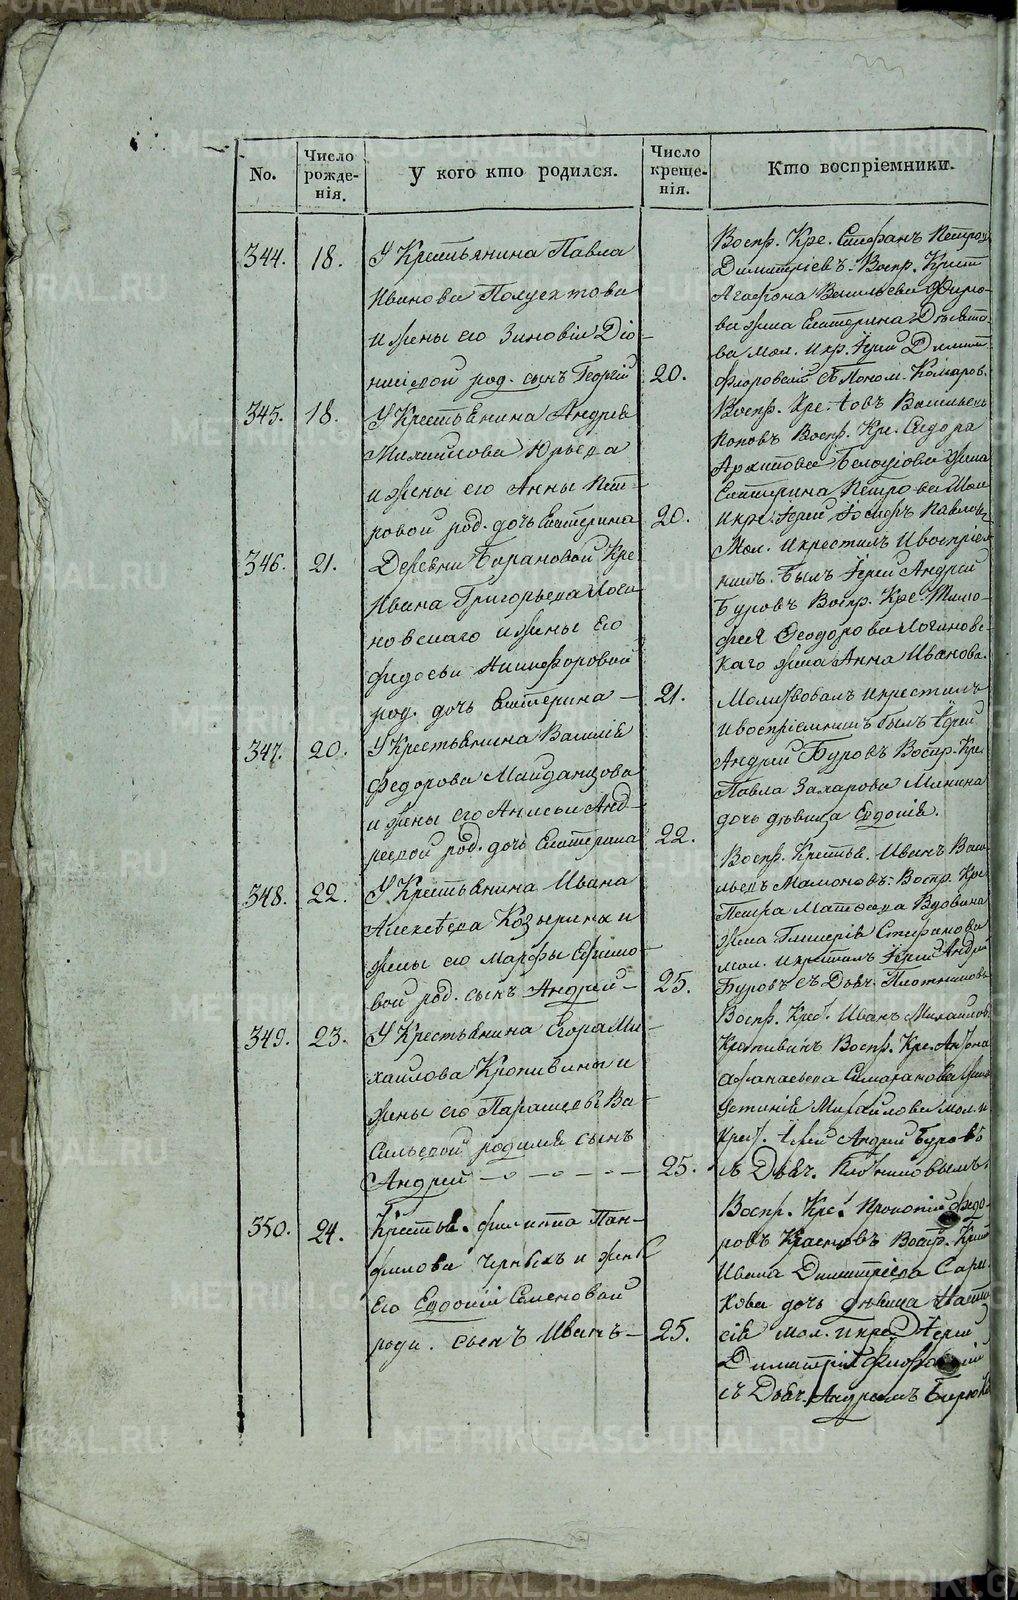 No.
Число рожде-нія.
У кого кто родился.
Число креще-нія.
Кто воспріемники.
344. 18.
У Крестьянина Павла
Иванова Полуектова
и жены его Зиновіи Діо-
нисіевой род. сынъ Георгій
20.
Воспр. Кре. Стефанъ Петровъ
Димитріевъ. Воспр. Крест
Агафона Васильева
ва жена Екатерина
ва мол. и кр. Іерей Димит
Флоровскій съ Поном. Комаров.
345. 18.
У Крестьянина Андрея
Михайлова Юрьева
и жены его Анны Пет-
ровой род. дочь Екатерина
20.
Воспр. Кре. Іовъ Васильевъ
Поповъ Воспр. Кр. Сидора
Архипова Белоусова жена
Екатерина Петрова Мол
и кре. Іерей Іосифъ Павловъ
346. 21.
Деревни Барановой Кре
Ивана Григорьева Логи
новскаго и жены его
Федосьи Никифоровой
род. дочь Екатерина —
21.
Мол. и крестилъ и воспріем
никъ былъ Іерей Андрей
Буровъ Воспр. Кре. Тимо-
фея Ѳеодорова Логиновс-
каго жена Анна Иванова.
347. 20.
У Крестьянина Василія
Федорова Майданцова
и жены его Анисьи Анд-
реевой род. дочь Екатерина
22.
Молитвовалъ и крестилъ
и воспріемникъ былъ Іерей
Андрей Буровъ Воспр. Кре.
Павла Захарова Мякина
дочь дѣвица Евдокія.
348. 22.
У Крестьянина Ивана
Алексѣева Козырина и
жены его Марфы Ефимо-
вой род. сынъ Андрей —
25.
Воспр. Крестья. Иванъ Васи
льевъ Мамоновъ: Воспр. Кре
Петра Матвѣева Вдовина
жена Гликерія Стефанова
мол. и крестилъ Іерей Андрей
Буровъ съ Дьяч. Плотниковы
349. 23.
У Крестьянина Егора Ми-
хайлова Кропивины и
жены его Парасковьѣ Ва-
сильевой родился сынъ
Андрей
25.
Воспр. Крес. Иванъ Михайлов.
Кропивинъ Воспр. Кре. Антона
Афанасьева жена
Устинія Михайлова мол. и
Крест. Іерей Андрей Буровъ
съ Дьяч. Плотниковымъ.
350. 24.
Крестья. Филиппа Пан-
филова Черныхъ и жены
Его Евдокіи Семеновой
роди. сынъ Иванъ —
25.
Воспр. Кре. Прокопій Федо-
ровъ Воспр. Крест
Ивана Димитріева Сари-
кова дочь дѣвица Настас
сія мол. и крес Іерей
Димитрій Флоровскій
съ Дьяч. Андреемъ